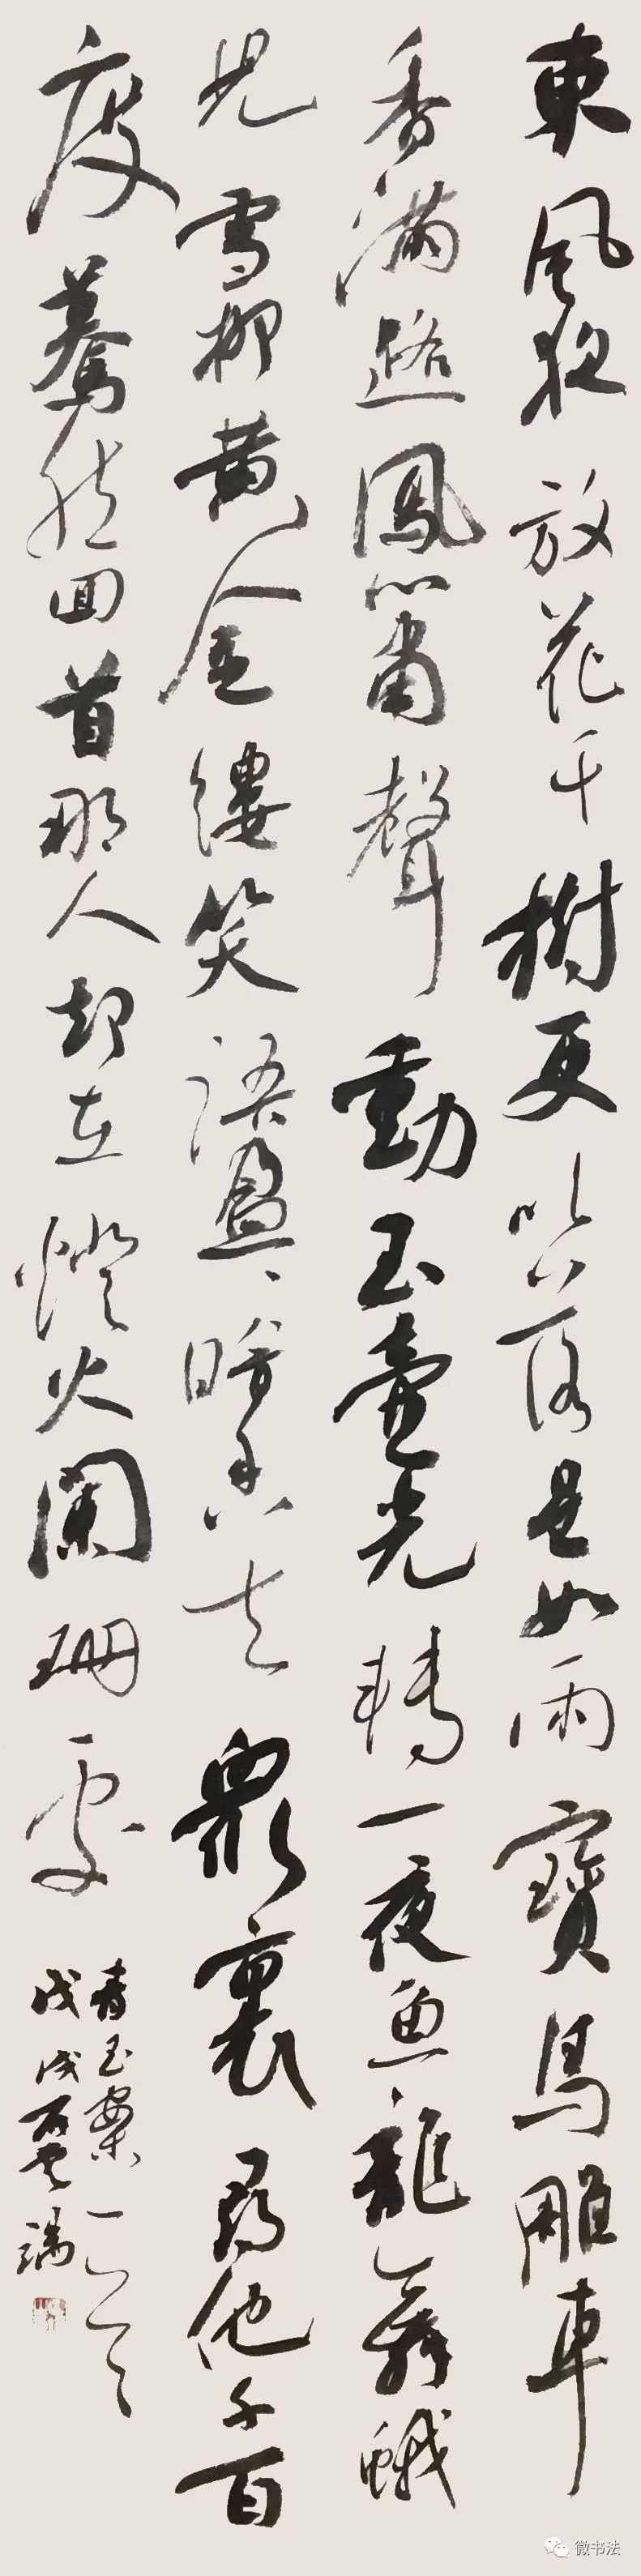 東風夜放花千樹更吹落星如雨寶馬雕車
香滿路鳳簫聲動玉壺光轉一夜魚龍舞蛾
兒雪柳黃金縷笑語盈、暗香去眾裏尋他千百
度驀然回首那人却在燈火闌珊處
青玉案
戊戌
微书法